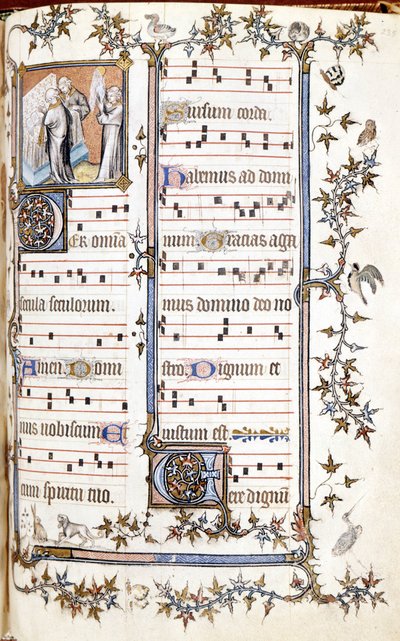 Per omnia
secula seculorum.
Amen. Domi
nus vobiscum Et
cum spiritu tuo.
Sursum corda.
Habemus ad domi
num. Gracias aga
mus domino deo no
stro. Dignum et
iustum est.
Vere dignum